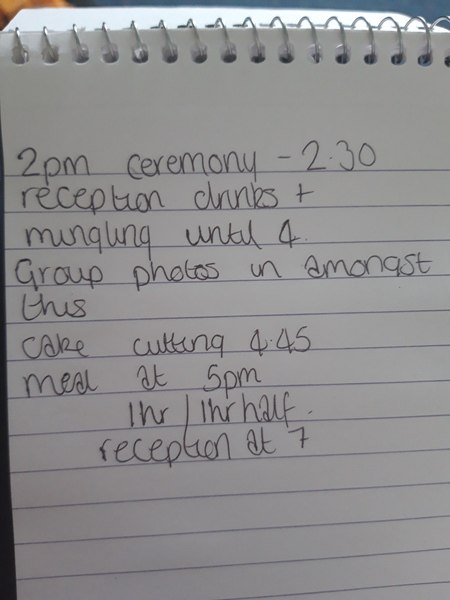 2pm ceremony - 2.30
reception drinks +
mingling until 4.
Group photos in amongst
this
cake cutting 4.45
meal at 5pm
1hr / 1hr half.
reception at 7